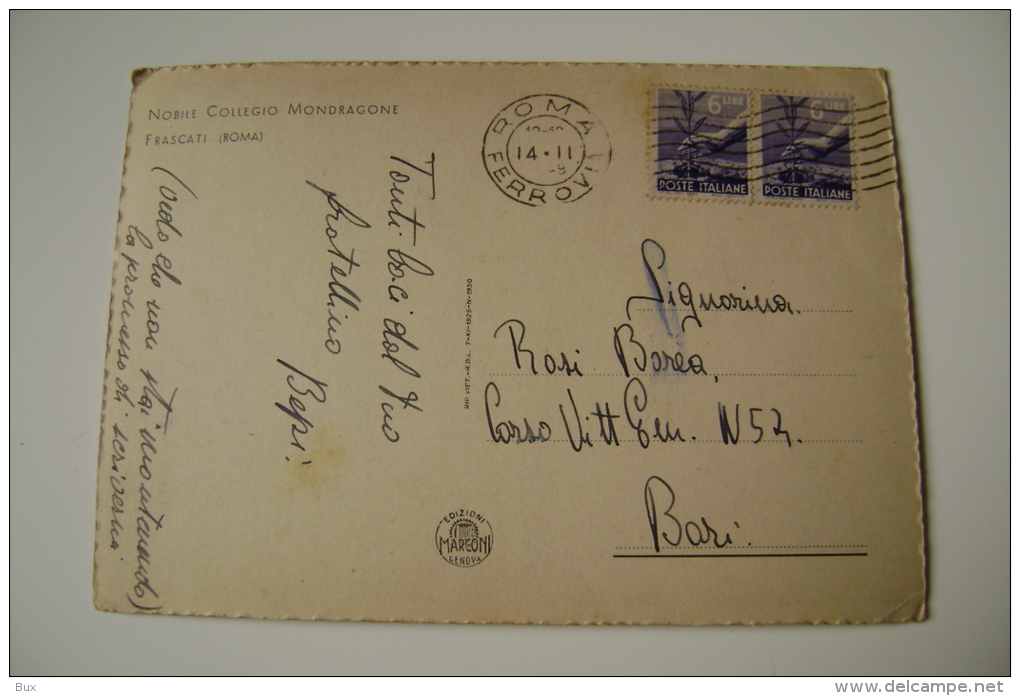 NOBILE COLLEGIO MONDRAGONE
FRASCATI (ROMA)
ROMA
14·11
FERROVIA
6 LIRE
POSTE ITALIANE
6 LIRE
POSTE ITALIANE
Tanti baci dal tuo
fratellino
Bepi.
(vedo che non stai
la promessa di scrivermi
RIP. VIET.-R.D.L. 7-XI-1925-N-1950
Signorina
Rosi Borea,
Corso Vitt Em. N 52.
Bari
EDIZIONI
MARCONI
GENOVA
Bux
www.delcampe.net